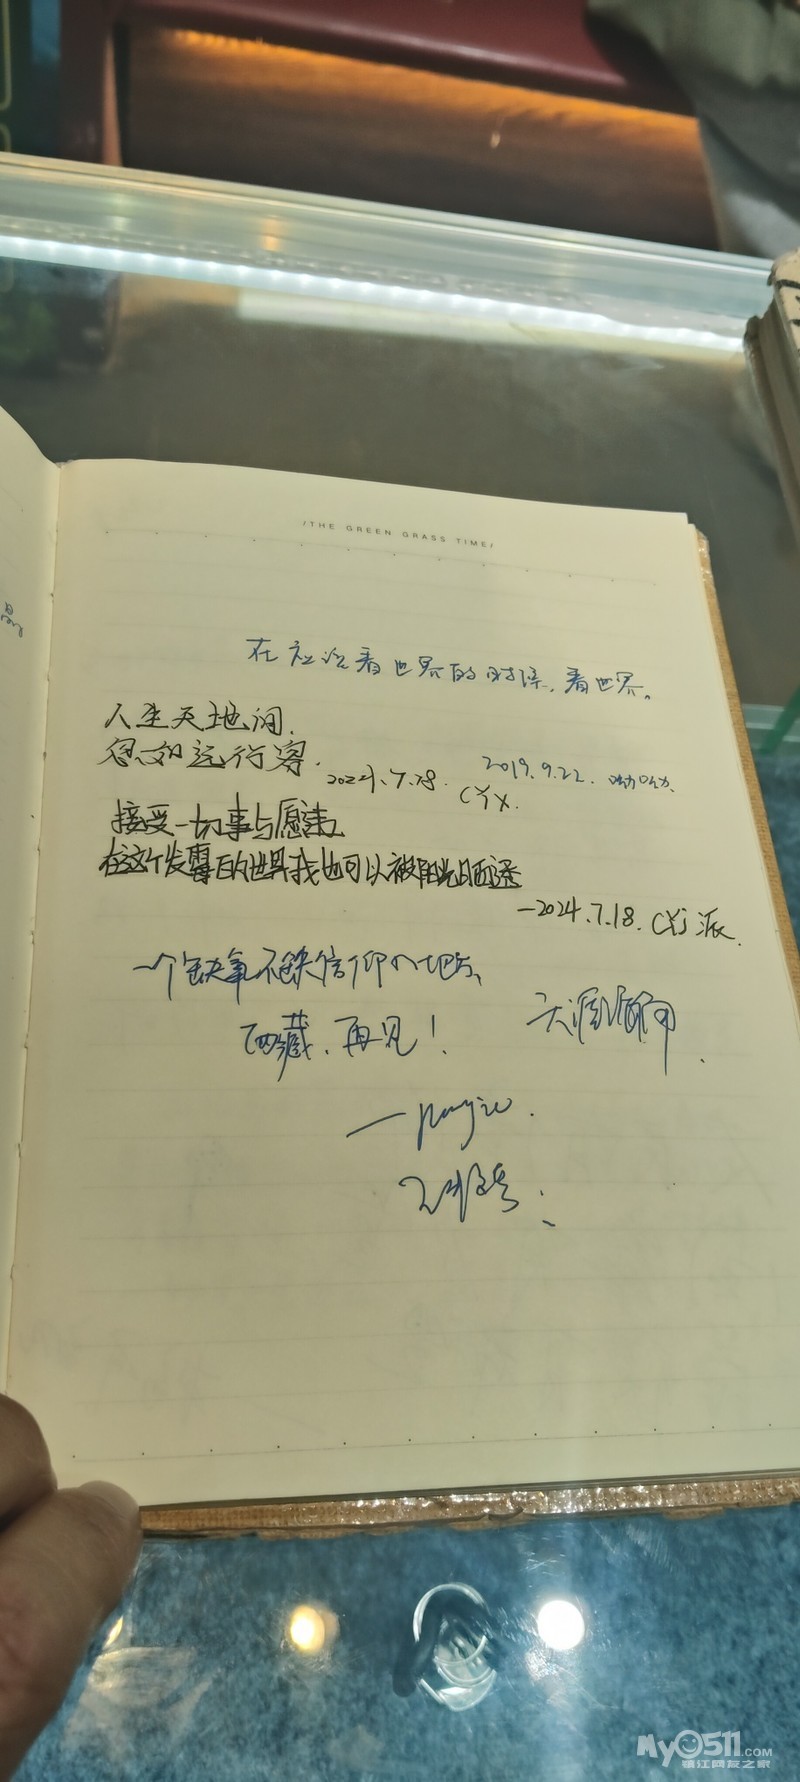 /THE GREEN GRASS TIME/
在应该看世界的时候，看世界。
2019.9.22. 呦呦
人生天地间，
忽如远行客．
2024.7.28. CYX.
接受一切事与愿违
在这个发霉的世界我也可以被阳光晒透
—2024.7.18. CYJ 派．
一个缺氧不缺信仰的地方、
西藏、再见！
天涯
My0511.COM
镇江网友之家